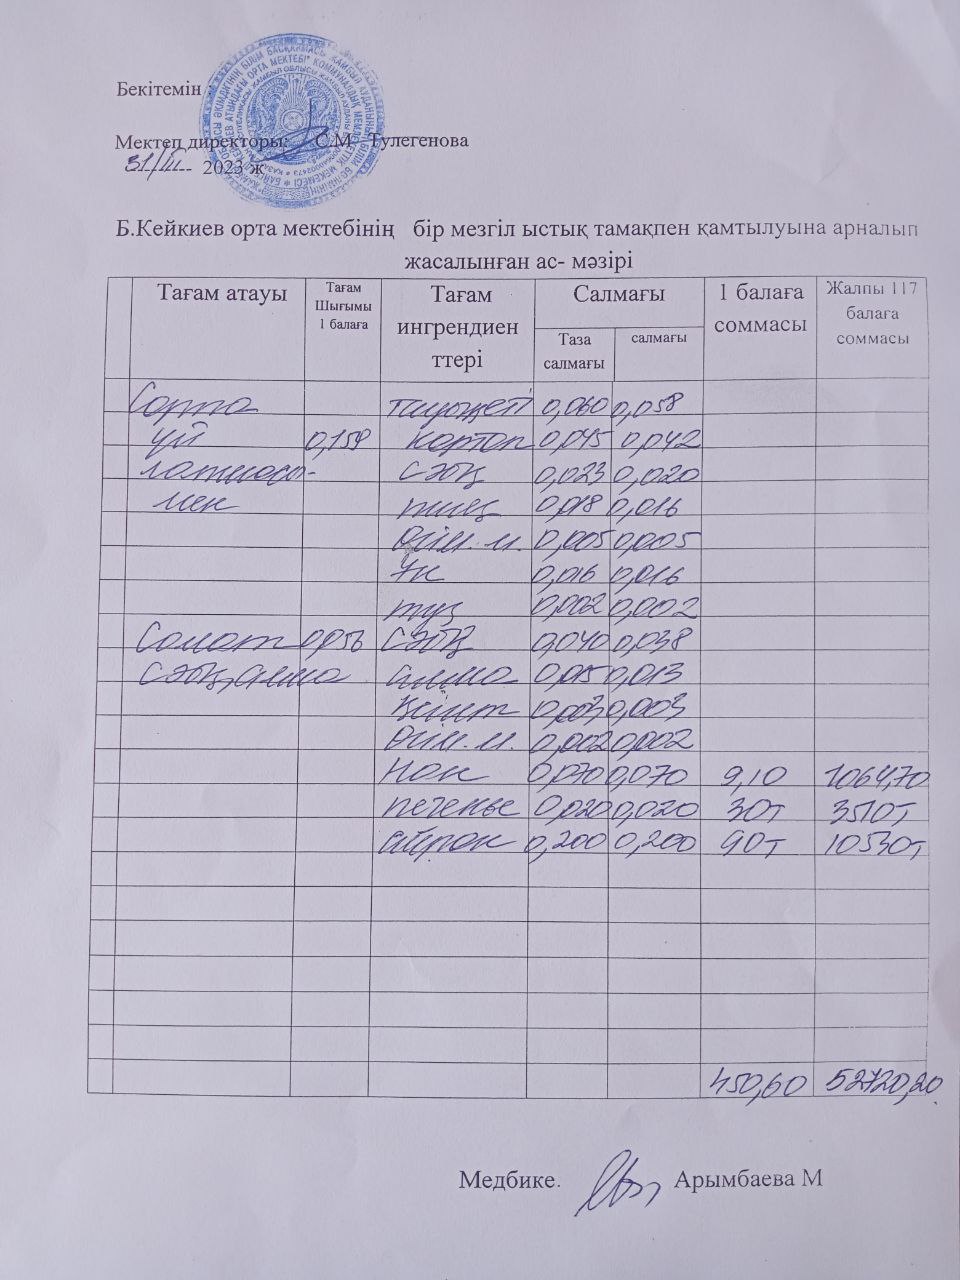 Бекітемін
Мектеп директоры: С.М. Тулегенова
31/III 2023 ж
Б.Кейкиев орта мектебінің бір мезгіл ыстық тамақпен қамтылуына арналып
жасалынған ас- мәзірі
Тағам атауы Тағам Шығымы 1 балаға Тағам ингрендиен ттері Салмағы 1 балаға соммасы Жалпы 117 балаға соммасы
Таза салмағы салмағы
Сорпа тауықеті 0,060 0,058
үй 0,159 картоп 0,045 0,042
лапшасы- сәбіз 0,023 0,020
мен пияз 0,018 0,016
Өсім.м. 0,005 0,005
Ұн 0,016 0,016
тұз 0,002 0,002
Салат 0,056 сәбіз 0,040 0,038
сәбіз,алма алма 0,015 0,013
Қант 0,003 0,003
Өсім.м. 0,002 0,002
Нан 0,070 0,070 9,10 1064,70
печенье 0,020 0,020 30т 3510т
айран 0,200 0,200 90т 10530т
450,60 52720,20
Медбике. Арымбаева М